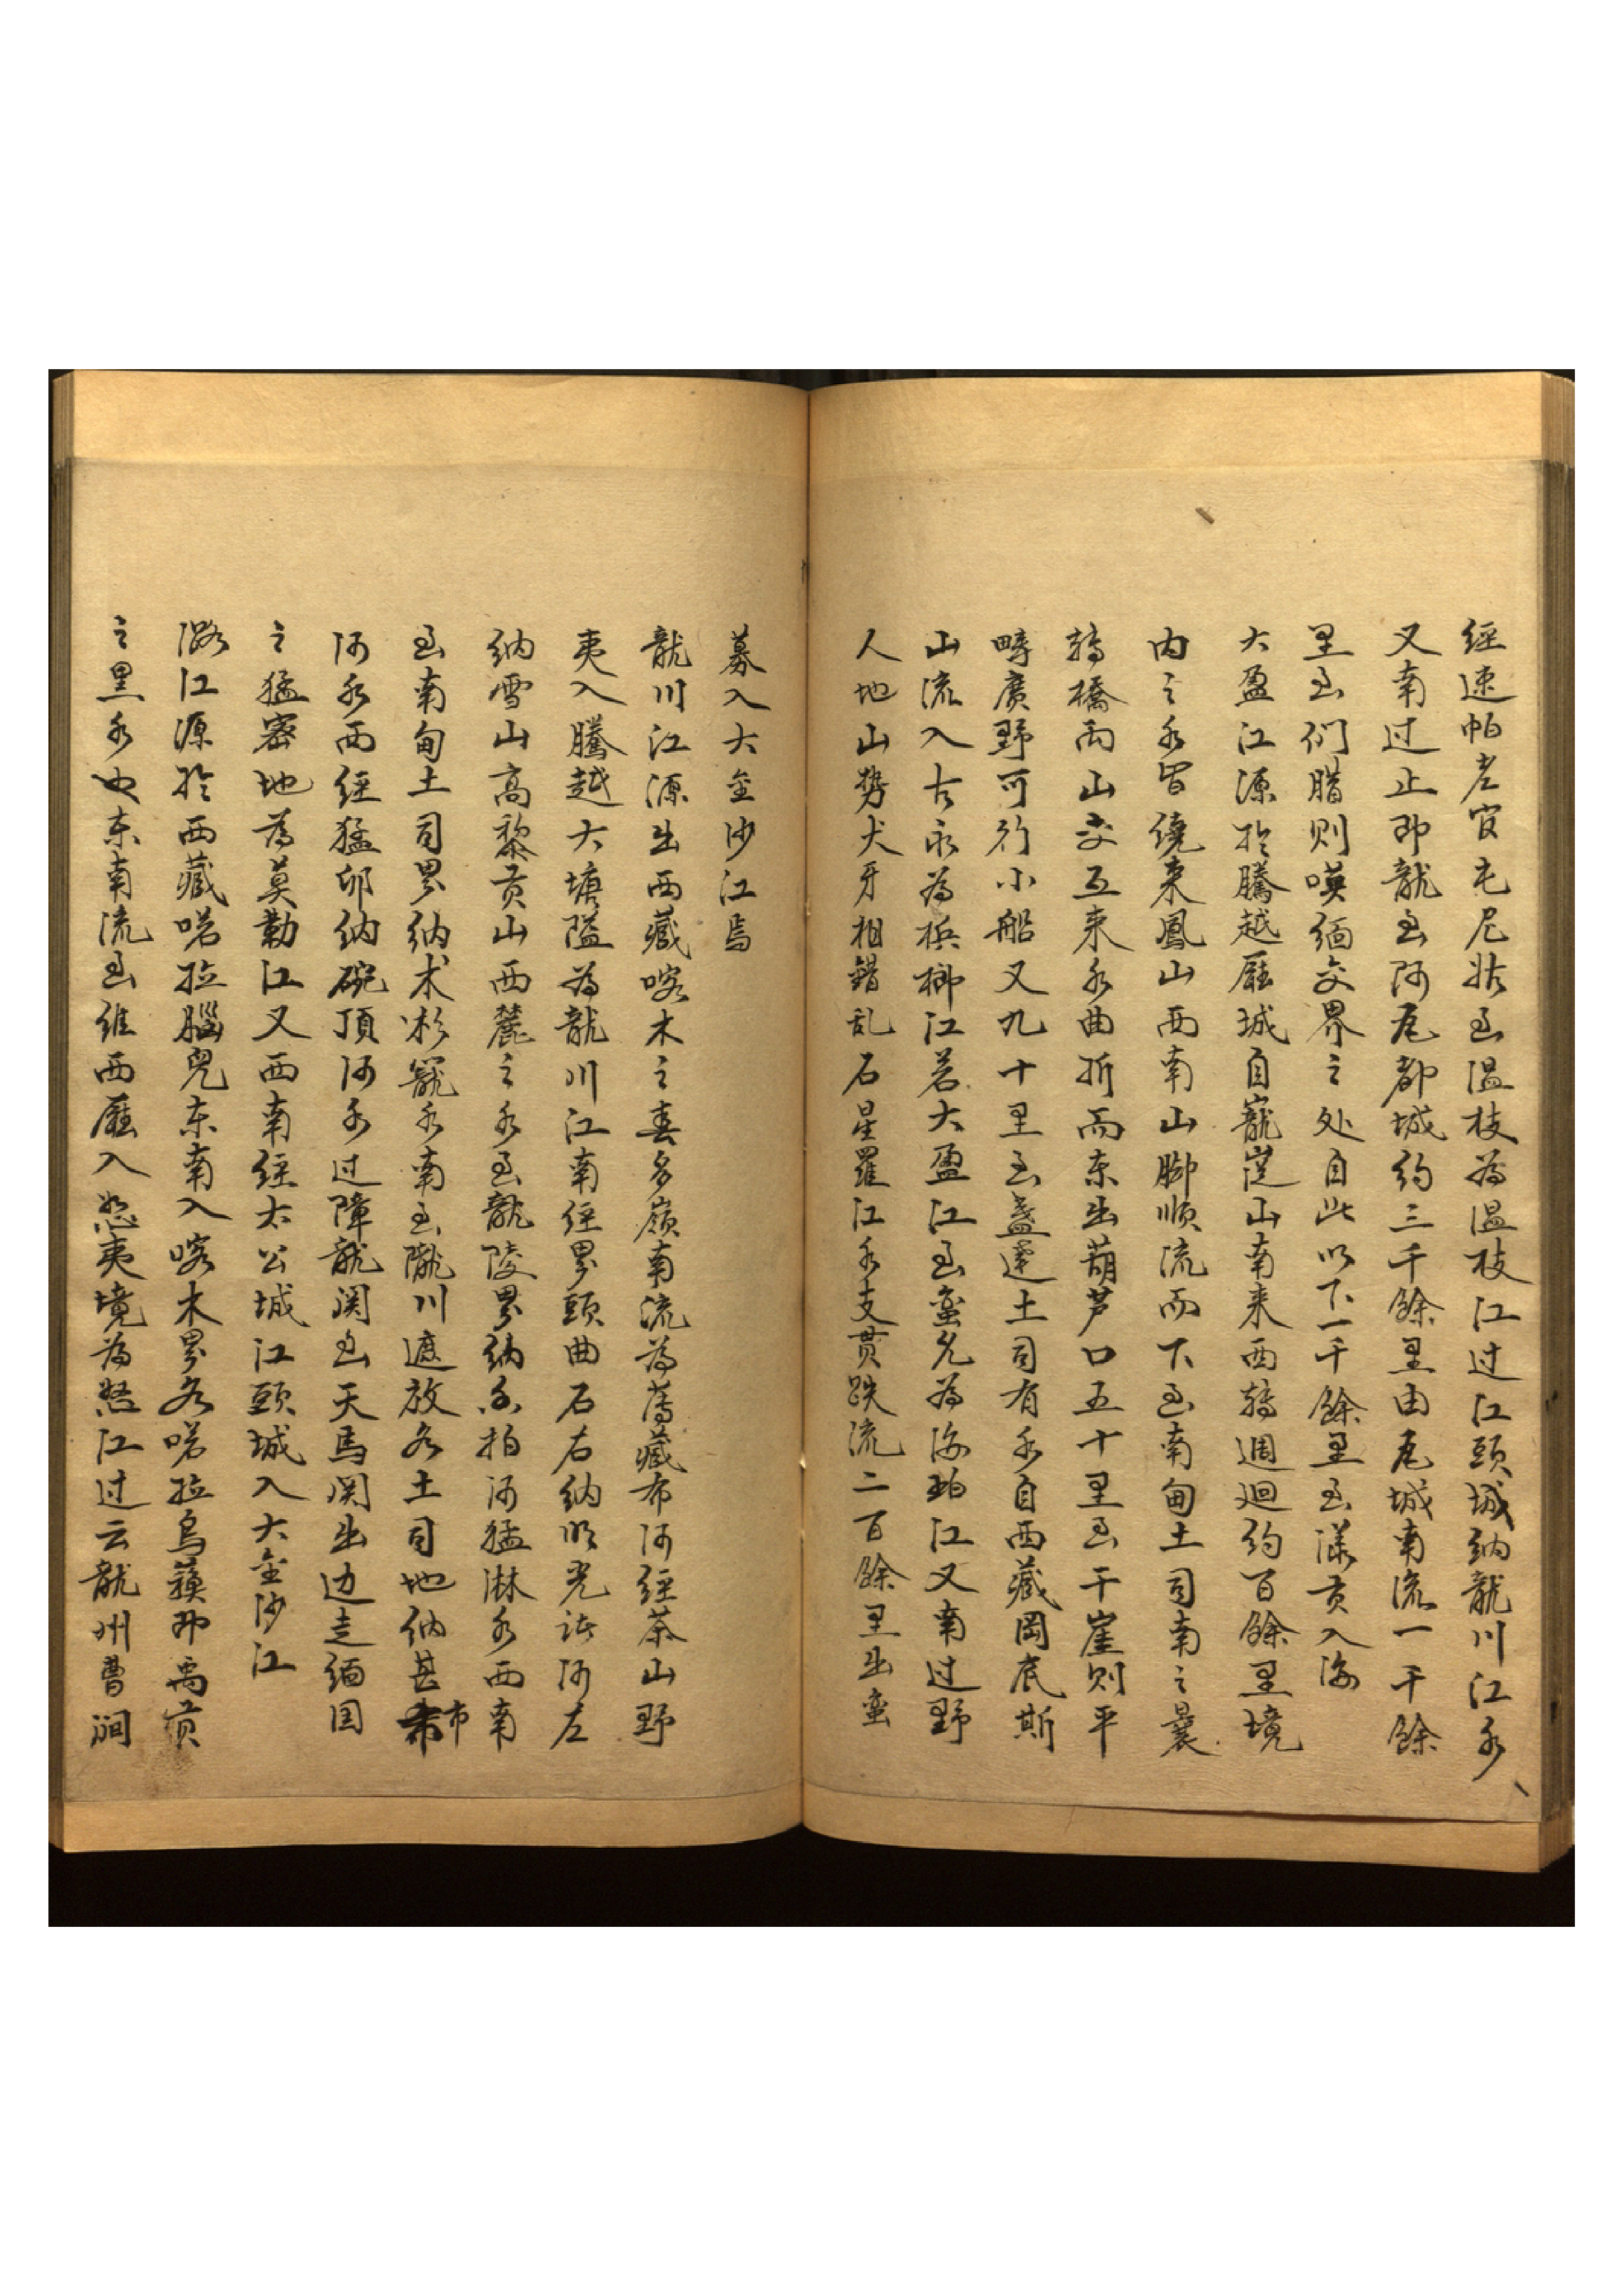 經速帕老官屯尼狀至温枝為温枝江过江頭城纳龍川江水
又南过止即龍至阿瓦都城约三千餘里由瓦城南流一千餘
里至们腊则嘆缅交界之处自此以下一千餘里至漾贡入海
大盈江源於騰越厛城自巃嵸山南来西轉週迴约百餘里境
内之水皆绕来鳳山西南山脚順流而下至南甸土司南之曩
轉橋两山交互来水曲折而东出葫芦口五十里至干崖则平
疇廣野可行小船又九十里至盞達土司有水自西藏岡底斯
山流入古永為梹榔江若大盈江至蛮允為海珀江又南过野
人地山势犬牙相錯乱石星羅江水支贯跌流二百餘里出蛮
募入大金沙江焉
龍川江源出西藏喀木之春多嶺南流為薄藏布河經茶山野
夷入騰越大塘隘為龍川江南经界頭曲石右纳順光諸河左
纳雪山高黎贡山西麓之水至龍陵界纳香柏河猛淋水西南
至南甸土司界纳木杉籠水南至隴川遮放各土司地纳芒市
河水西经猛卯纳碗頂河水过障龍関至天馬関出边走缅国
之猛密地為莫勒江又西南经太公城江頭城入大金沙江
潞江源於西藏喏拉腦兒东南入喀木界名喏拉烏蘓即禹貢
之黑水也东南流至維西厛入怒夷境為怒江过云龍州曹澗